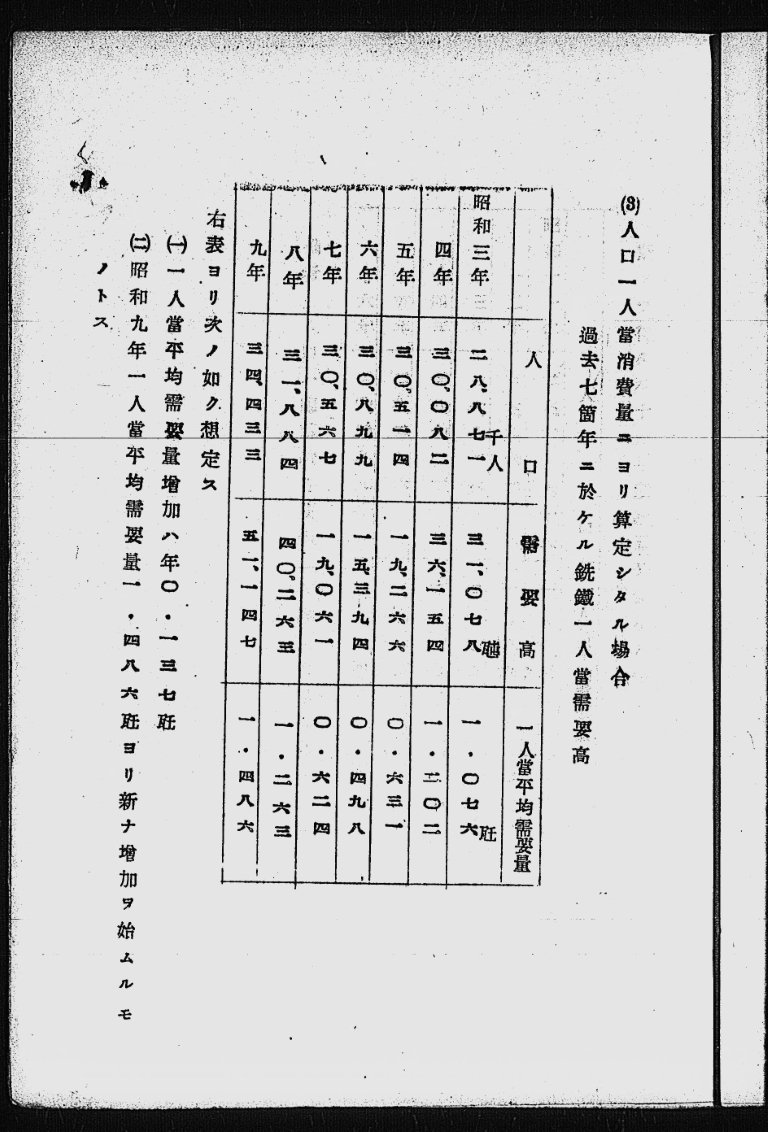 (3)人口一人當消費量ニヨリ算定シタル場合
過去七箇年ニ於ケル銑鐵一人當需要高
人口 需要高 一人當平均需要量
昭和三年 二八、八七一千人 三一、〇七八瓲 一・〇七六瓩
四年 三〇、〇八二 三六、一五四 一・二〇二
五年 三〇、五一四 一九、二六六 〇・六三一
六年 三〇、八九九 一五、三九四 〇・四九八
七年 三〇、五六七 一九、〇六一 〇・六二四
八年 三一、八八四 四〇、二六三 一・二六三
九年 三四、四三三 五一、一四七 一・四八六
右表ヨリ次ノ如ク想定ス
(一)一人當平均需要量增加ハ年〇・一三七瓩
(二)昭和九年一人當平均需要量一・四八六瓩ヨリ新ナ增加ヲ始ムルモ
ノトス